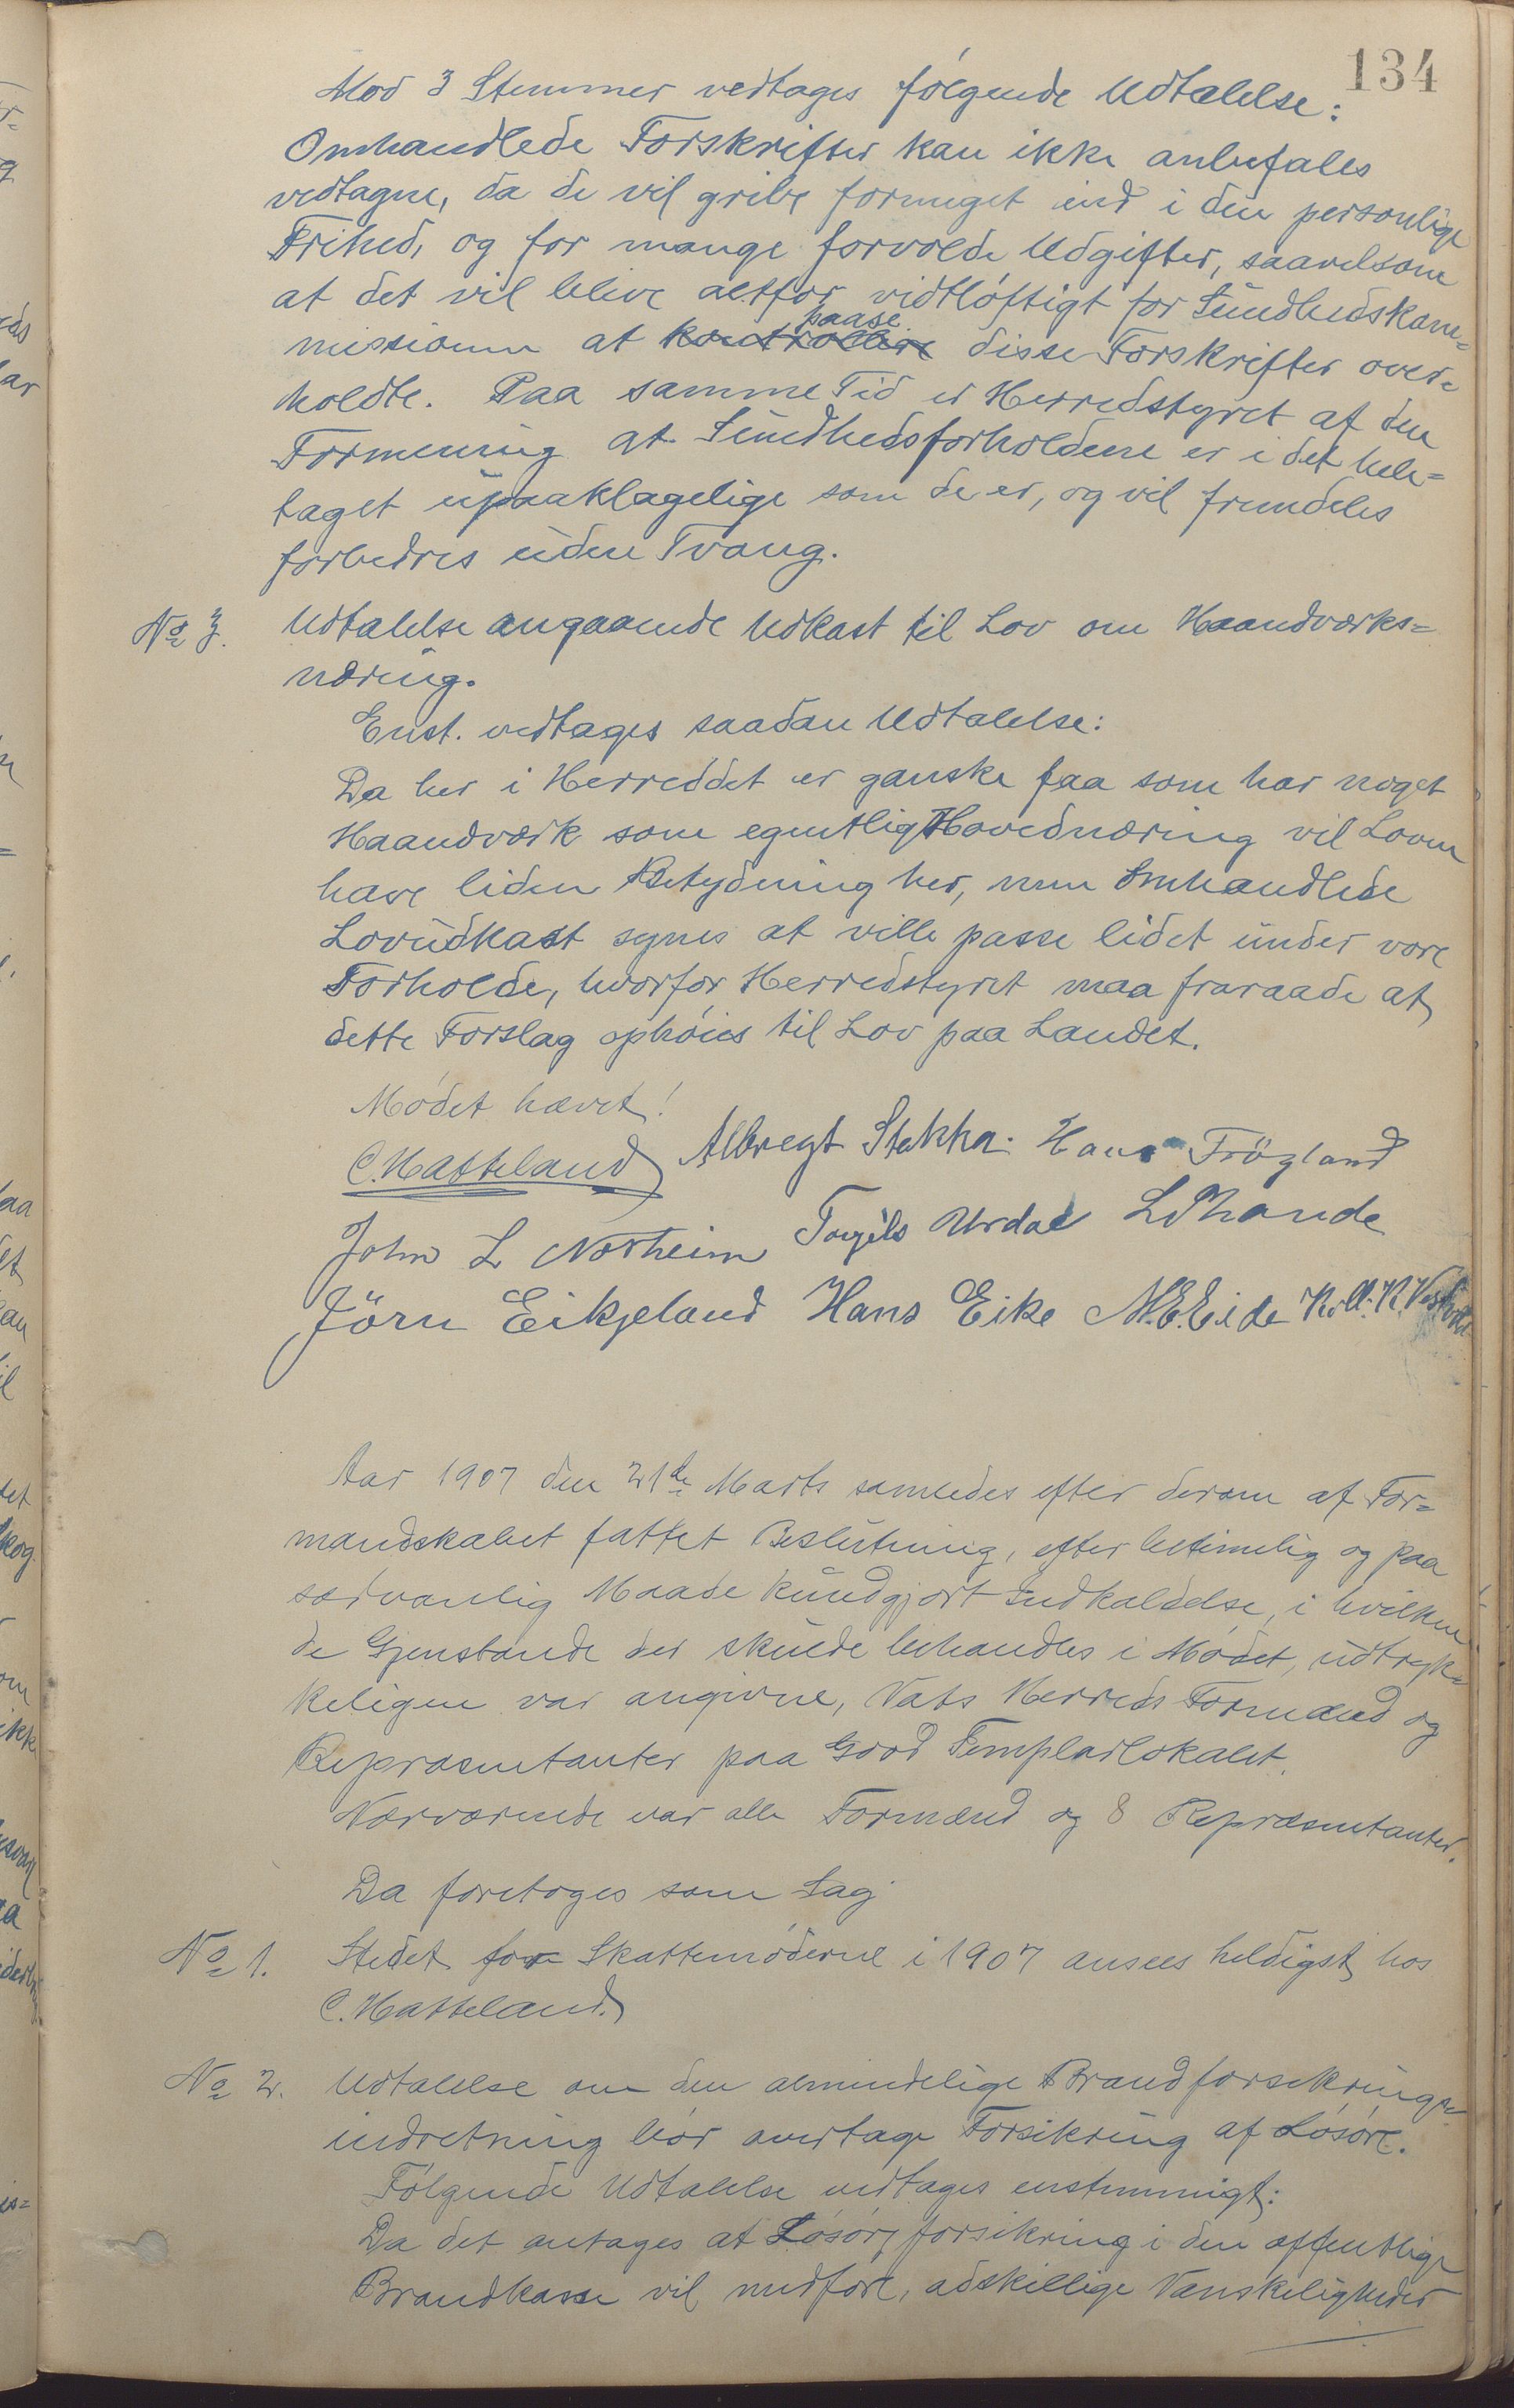 134
Mod 3 Stemmer vedtages følgende Udtalelse:
Omhandlede Forskrifter kan ikke anbefales
vedtagne, da de vil gribe formeget ind i den personlige
Frihed, og for mange forvolde Udgifter, saavelsom
at det vil blive altfor vidtløftigt for Sundhedskom=
missionen at kontrollere paase disse Forskrifter over=
holdte. Paa samme Tid er Herredstyret af den
Formening at Sundhedsforholdene er i det hele=
taget upaaklagelige som de er, og vil fremdeles
forbedres uden Tvang.
No 3. Udtalelse angaaende Udkast til Lov om Haandværks=
næring.
Enst. vedtages saadan Udtalelse:
Da her i Herreddet er ganske faa som har noget
Haandværk som egentlig Hovednæring vil Loven
have liden Betydning her, men Omhandlede
Lovudkast synes at ville passe lidet under vore
Forholde, hvorfor Herredstyret maa fraraade at
dette Forslag ophøies til Lov paa Landet.
Mødet hævet!
C. Hatteland Albregt Stakka. Hans Frøgland
John L Norheim Torgils Urdal L Rhande
Jörn Eikjeland Hans Eike M.E. Eide
Aar 1907 den 21de Marts samledes efter derom af For=
mandskabet fattet Beslutning, efter betimelig og paa
sædvanlig Maade kundgjort Indkaldelse, i hvilken
de Gjenstande der skulde behandles i Mødet, udtryk=
keligen var angivne, Vats Herreds Formænd og
Repræsentanter paa Good Templarlokalet.
Nærværende var alle Formænd og 8 Repræsentanter.
Da foretoges som Sag
No 1. Stedet for Skattemøderne i 1907 ansees heldigst hos
C. Hatteland.
No 2. Udtalelse om den almindelige Brandforsikrings=
indretning bør overtage Forsikring af Løsøre.
Følgende Udtalelse vedtages enstemmigt:
Da det antages at Løsøreforsikring i den offentlige
Brandkasse vil medføre, adskillige Vanskeligheder